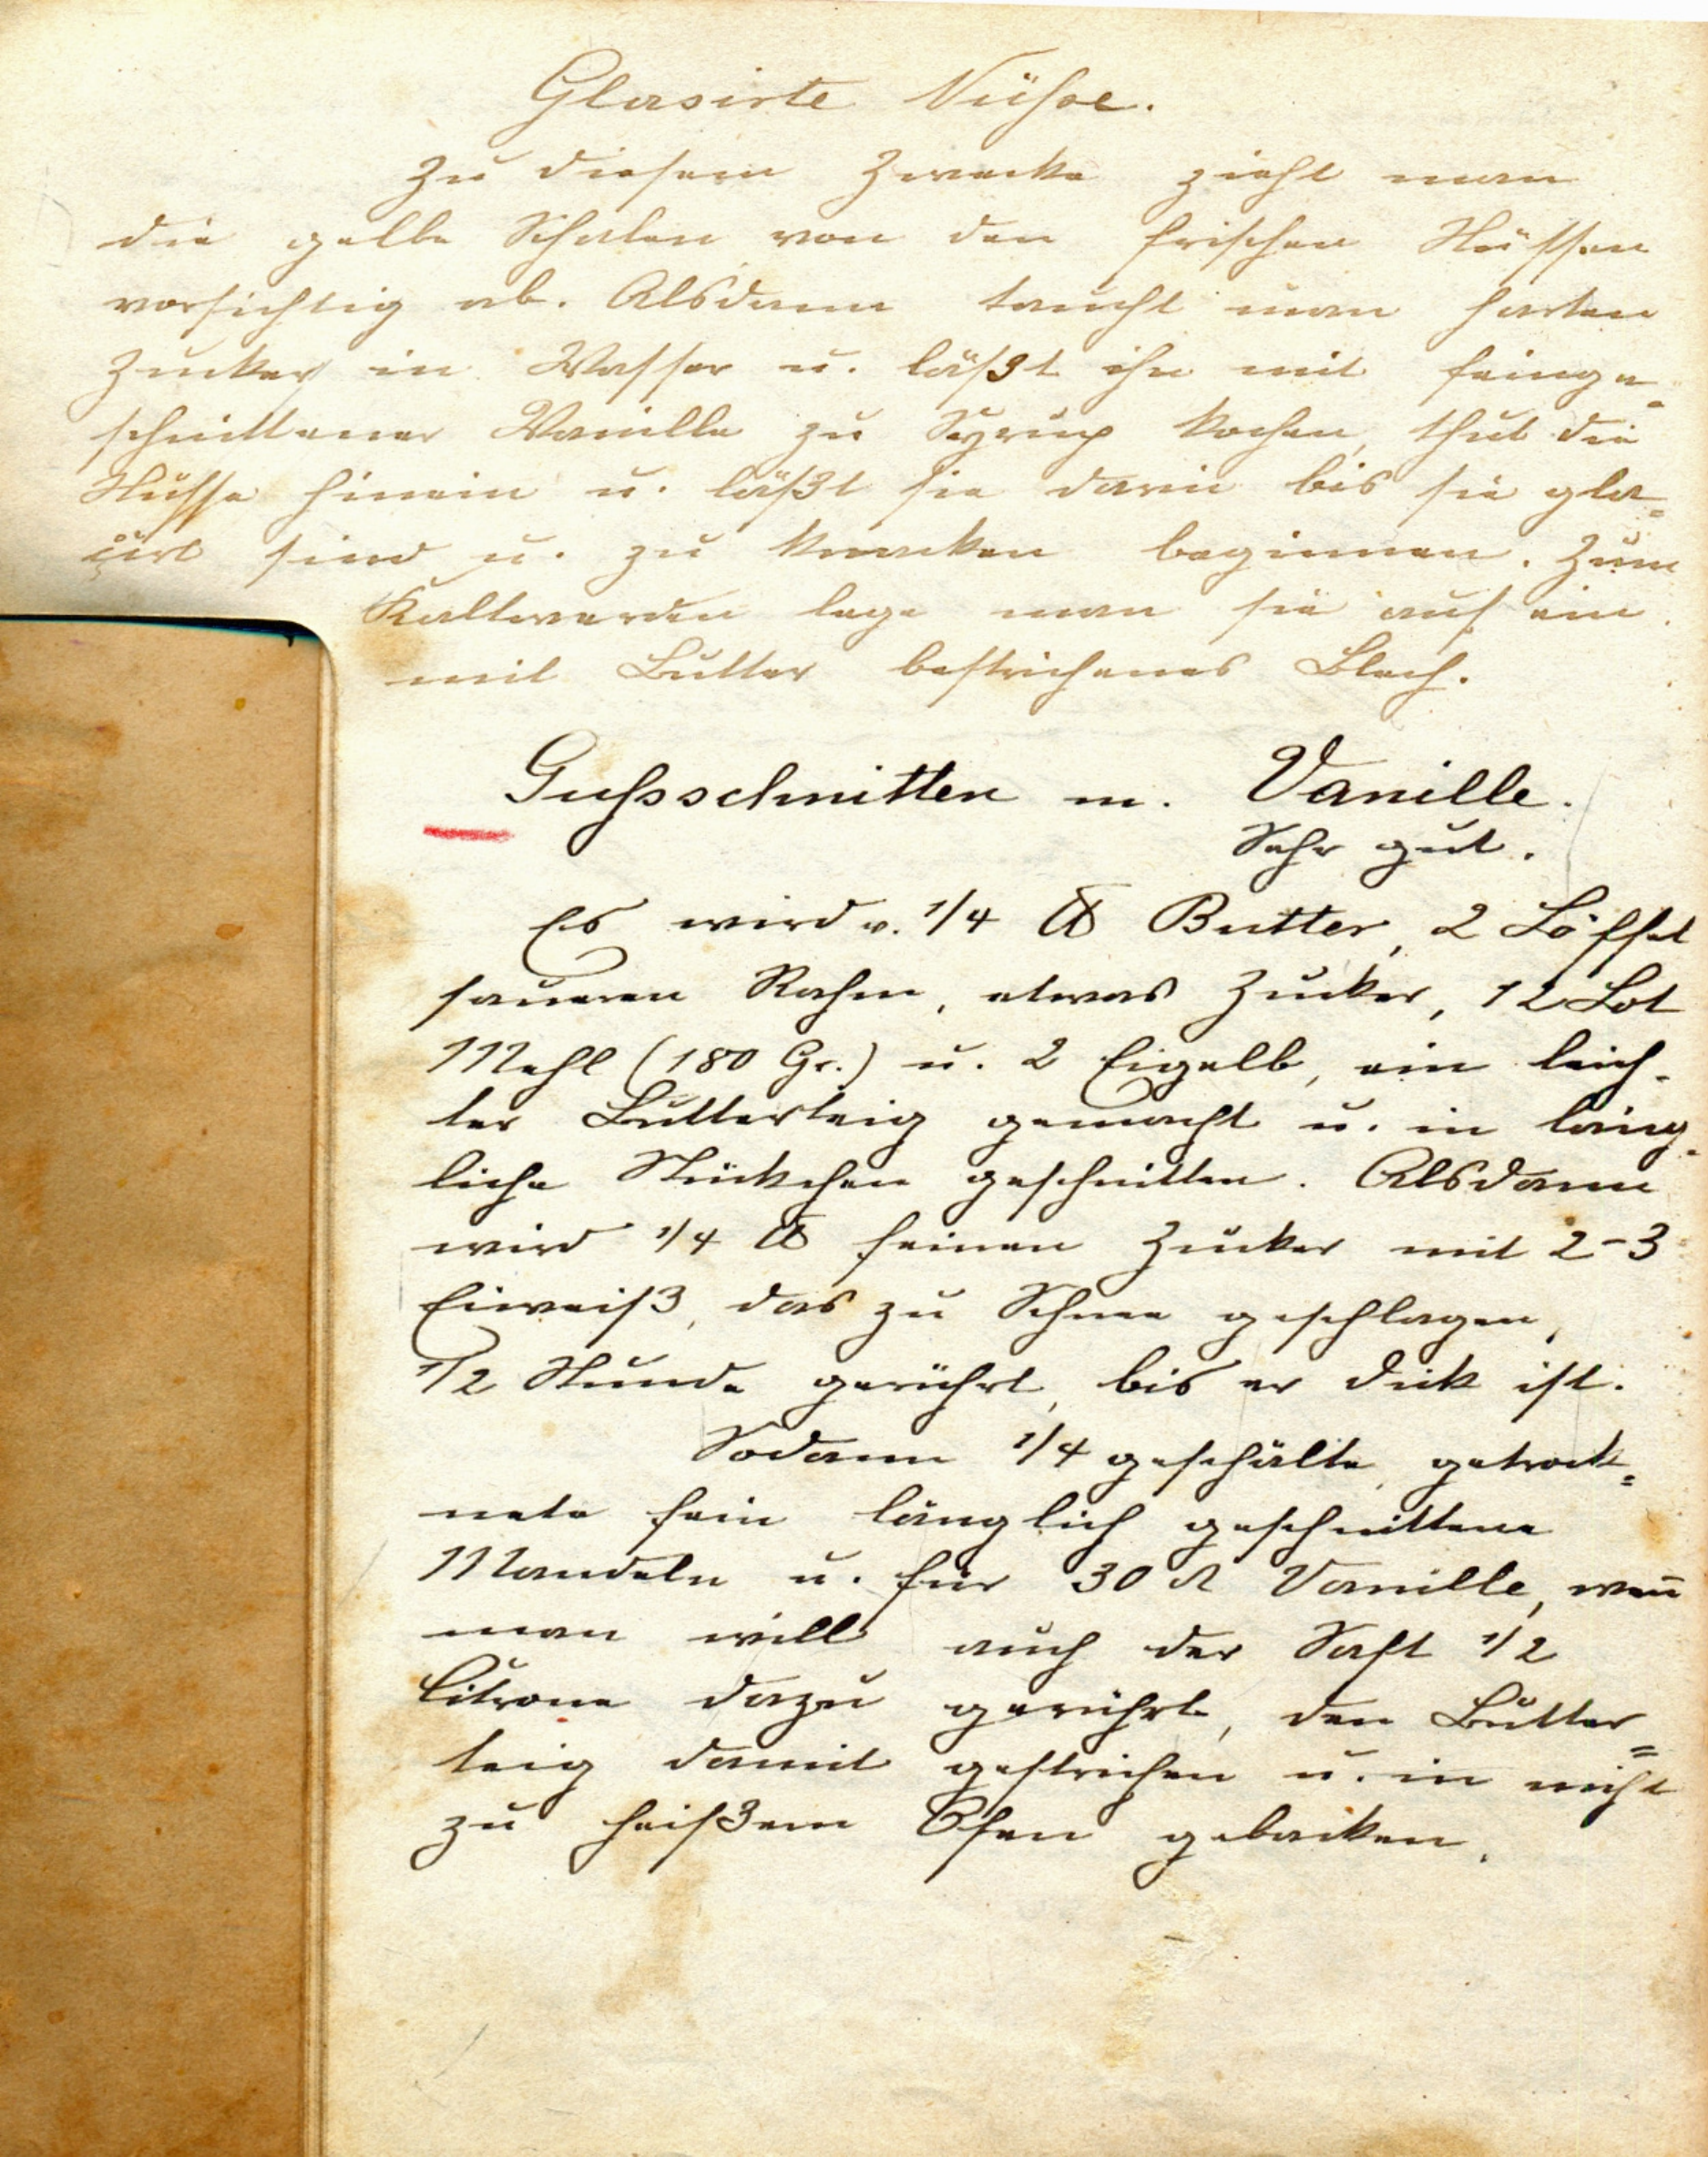 Glasirte Nüße.
Zu diesem Zwecke zieht man
die gelbe Schalen von den frischen Nüssen
vorsichtig ab. Alsdann taucht man harten
Zucker in Wasser u. läßt ihn mit feinge-
schnittener Vanille zu Syrup kochen, thut die
Nüsse hinein u. läßt sie darin bis sie gla=
çirt sind u. zu knacken beginnen. Zum
Kaltwerden lege man sie auf ein
mit Butter bestrichenes Blech.
Gußschnitten m. Vanille.
Sehr gut.
Es wird v. 1/4 ℔ Butter, 2 Löffel
saueren Rahm, etwas Zucker, 12 Lot
Mehl (180 Gr.) u. 2 Eigelb, ein leich-
ter Butterteig gemacht u. in läng-
liche Stückchen geschnitten. Alsdann
wird 1/4 ℔ feinen Zucker mit 2-3
Eiweiß, das zu Schnee geschlagen,
1/2 Stunde gerührt, bis er dick ist.
Sodann 1/4 geschälte, getrock=
nete fein länglich geschnittene
Mandeln u. für 30 ₰ Vanille, weñ
man will auch der Saft 1/2
Citrone dazu gerührt, den Butter=
teig damit gestrichen u. in nicht
zu heißem Ofen gebacken.